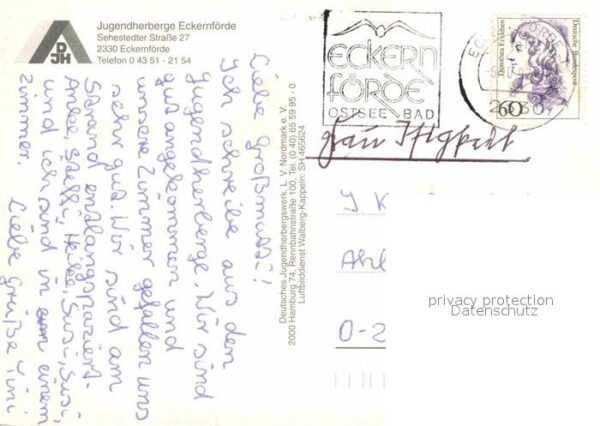 DJH
Jugendherberge Eckernförde
Sehestedter Straße 27
2330 Eckernförde
Telefon 0 43 51 - 21 54
Liebe Großmutti!
Ich schreibe aus den
Jugendherberge. Wir sind
gut angekommen und
unsere Zimmer gefallen uns
sehr gut. Wir sind am
Strand entlangspaziert.
Anke, Steffi, Heike, Susi, Susi,
und ich sind in einem
Zimmer.
Liebe Grüße
Deutsches Jugendherbergswerk, L. V. Nordmark e. V.
2000 Hamburg 74, Rennbahnstraße 100, Tel. (0 40) 65 59 95 - 0
Luftbilddienst Walberg-Kappeln: SH 465624
ECKERN
FÖRDE
OSTSEE BAD
Deutsche Bundespost
Dorothea Erxleben
60
2330
Frau
Ahl
O-2
privacy protection
Datenschutz